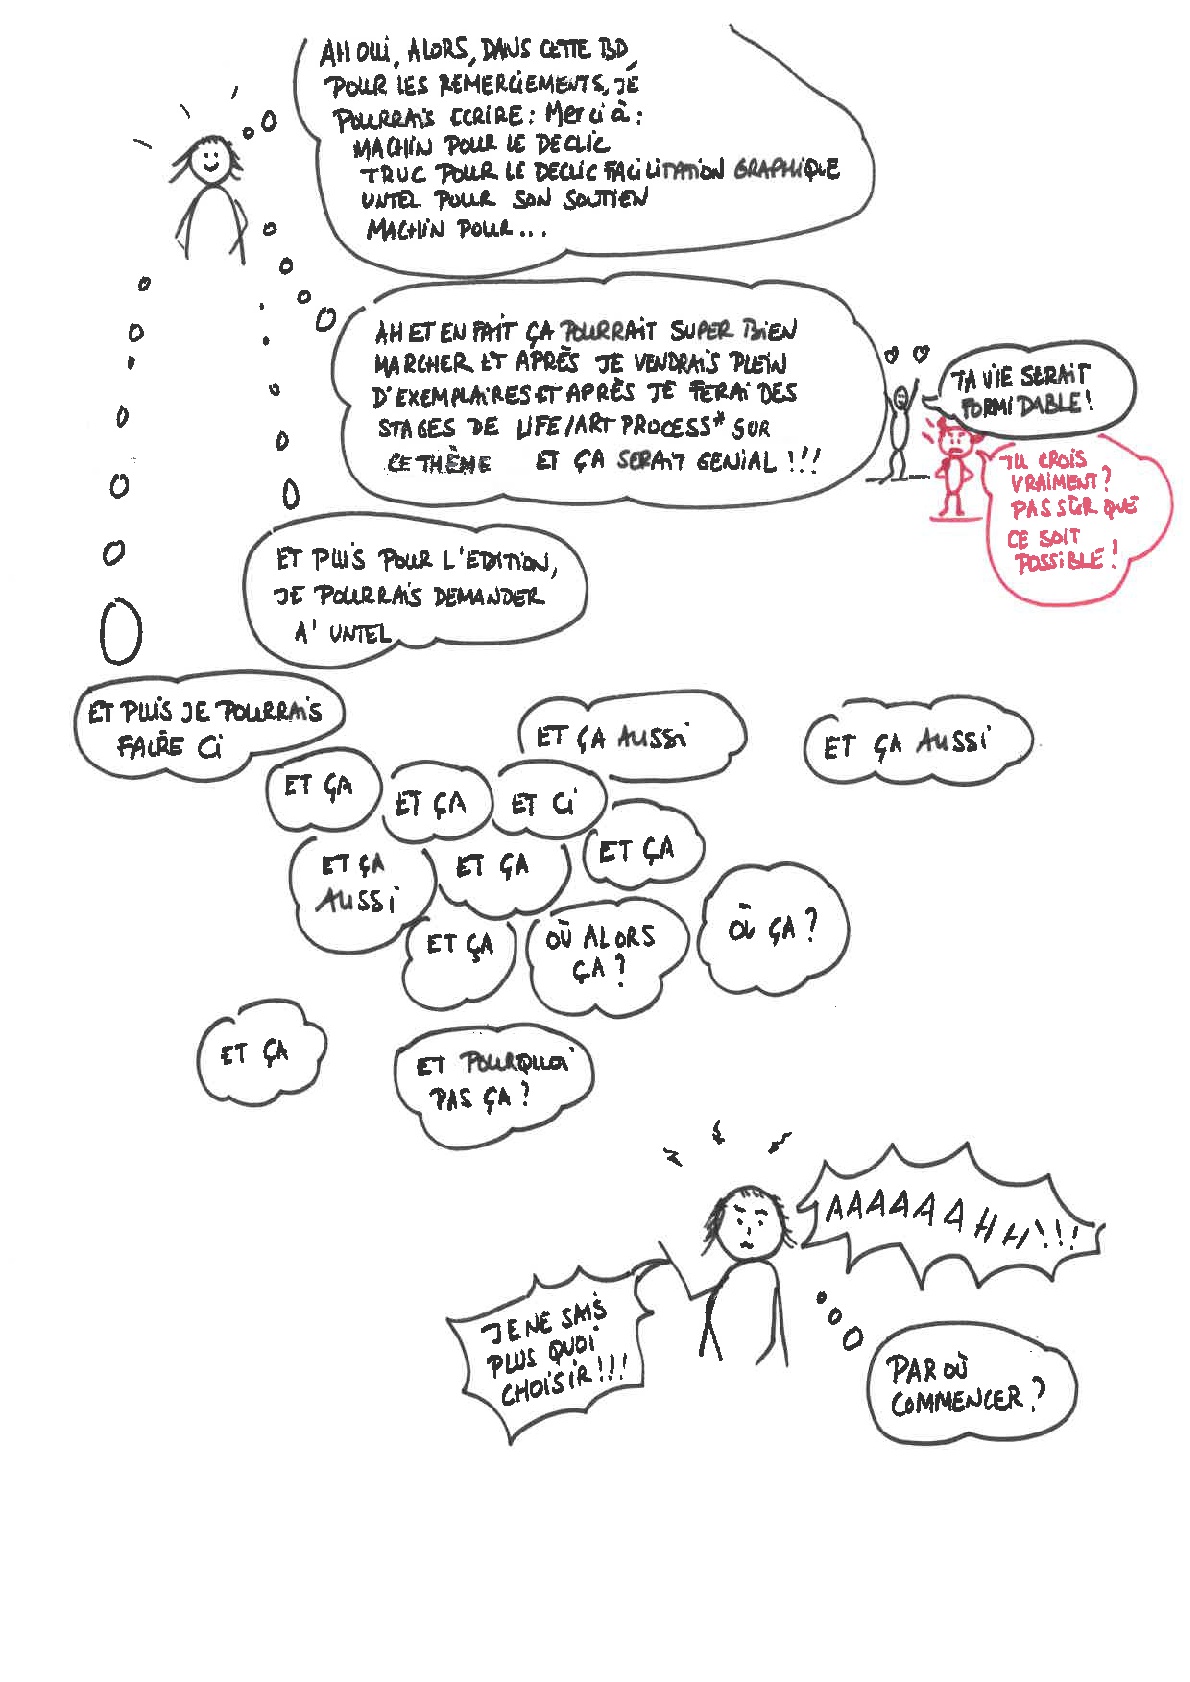 AH OUi, ALORS, DANS CETTE BD,
POUR LES REMERCiEMENTS, JE
POURRAiS ECRIRE : Merci à :
MACHiN POUR LE DECLiC
TRUC POUR LE DECLiC FACiLiTATiON GRAPHiQUE
UNTEL POUR SON SOUTiEN
MACHiN POUR...
AH ET EN FAiT ÇA POURRAiT SUPER BiEN
MARCHER ET APRÈS JE VENDRAiS PLEiN
D'EXEMPLAiRES ET APRÈS JE FERAi DES
STAGES DE LIFE/ART PROCESS* SUR
CE THÈME ET ÇA SERAiT GENiAL !!!
TA ViE SERAiT
FORMiDABLE !
TU CROiS
VRAiMENT ?
PAS SÛR QUE
CE SOiT
POSSiBLE !
ET PUiS POUR L'EDiTiON,
JE POURRAiS DEMANDER
A' UNTEL
ET PUiS JE POURRAiS
FAiRE Ci
ET ÇA AUSSi
ET ÇA AUSSi
ET ÇA
ET ÇA
ET Ci
ET ÇA
AUSSi
ET ÇA
ET ÇA
ET ÇA
OÙ ALORS
ÇA ?
OÙ ÇA ?
ET ÇA
ET POURQUOi
PAS ÇA ?
AAAAAAHH !!!
JE NE SAiS
PLUS QUOi
CHOiSiR !!!
PAR OÙ
COMMENCER ?